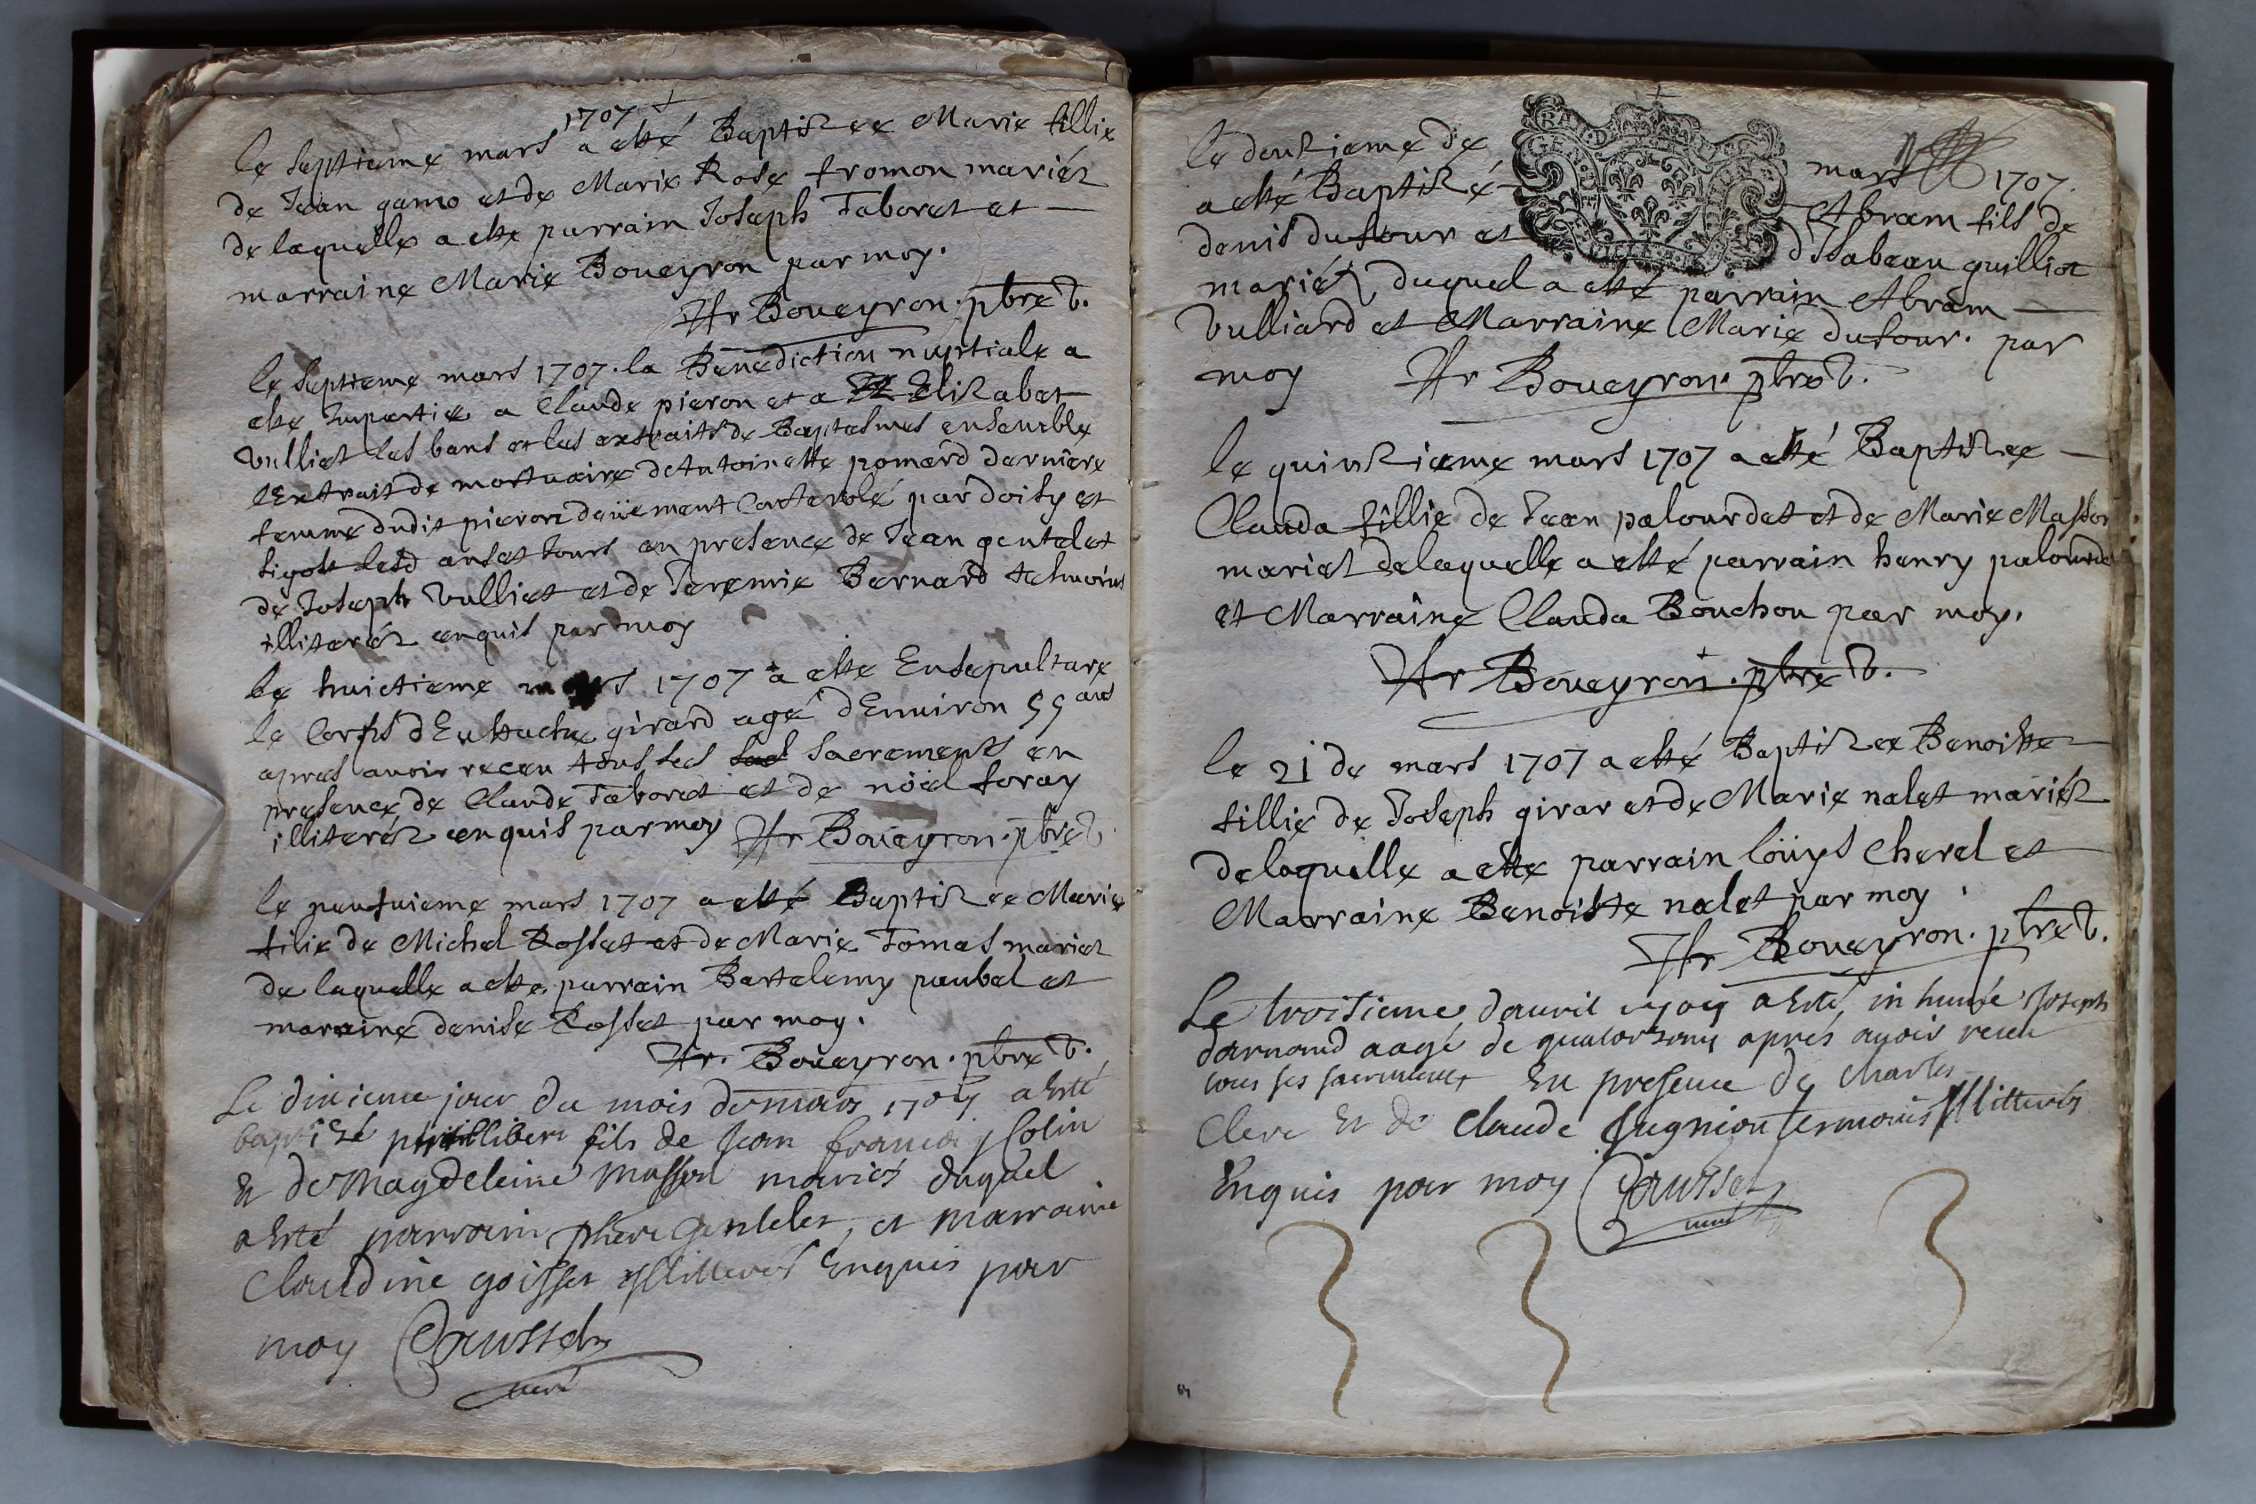 1707
le septieme mars a esté Baptizee Marie fillie
de Jean gamo et de Marie Rose fromon mariéz
de laquelle a este parrain Joseph Taboret et
marraine Marie Boueyron par moy.
Fr Boueyron. pbre V.
le septieme mars 1707. la Benediction nuptiale a
este Impartie a Claude pieron et a Elizabet
vulliet les bans et les extraits de Baptesmes ensemble
l'Extrait de mortuaire d'Antoinette pomard derniere
femme dudit pieron deüement par doisy et
ans et Jours en presence de Jean gentelet
de Joseph vulliet et de Jeremie Bernard
illiteréz enquis par moy
le huictieme mars 1707 a este Ensepulturé
le Corps d'Eustache girard agé d'Enuiron 55 ans
apres auoir receu tous ses sacrements en
presence de Claude Taboret et de nöel foray
illiteréz enquis par moy Fr Boueyron. pbre V.
le neufuieme mars 1707 a esté Baptizee Marie
filie de Michel Rosset et de Marie Tomas mariez
de laquelle a este parrain Bartelemy paubel et
maraine denise Rosset par moy.
Fr. Boueyron. pbre V.
Le dixieme jour du mois de mars 1707 a Esté
baptizé phillibert fils de Jean francois Colin
Et de Magdeleine Masson mariés duquel
a Esté parrain gentelet, et marraine
Claudine goisset Illitterés Enquis par
moy Crusset
curé
GEN. D
le douzieme de mars 1707.
a esté Baptizé Abram fils de
denis dufour et d'Isabeau guilliot
mariéz duquel a esté parrain Abram
vulliard et Marraine Marie dufour. par
moy Fr Boueyron. pbre V.
le quinzieme mars 1707 a esté Baptizee
Clauda fillie de Jean palourdet et de Marie Masson
mariez de laquelle a esté parrain henry palourdet
et Marraine Clauda Bouchou par moy.
Fr Boueyron. pbre V.
le 21 de mars 1707 a esté Baptizee Benoiste
fillie de Joseph girar et de Marie nalet mariéz
de laquelle a este parrain loüys Cherel et
Marraine Benoiste nalet par moy.
Fr Boueyron. pbre V.
Le troisieme d'auril a Esté inhumé Joseph
darnand aagé de quatorz ans aprés auoir receu
tous ses sacrements En presence de Charles
Clerc Et de Claude Jugnion tesmoins Illitterés
Enquis par moy Crusset
curé